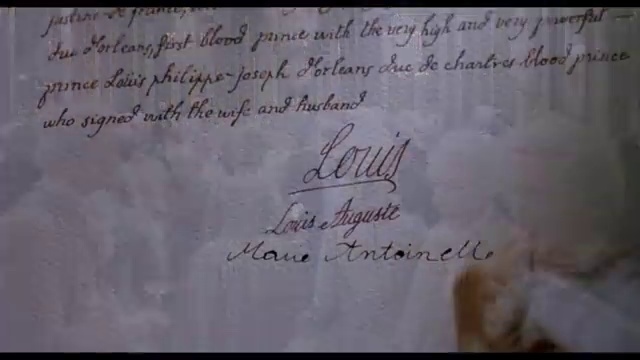 justine de france,
duc d'orleans, first blood prince with the very high and very powerful
prince Louis philippe-joseph d'orleans duc de chartres blood prince
who signed with the wife and husband
Louis
Louis Auguste
Marie Antoinette